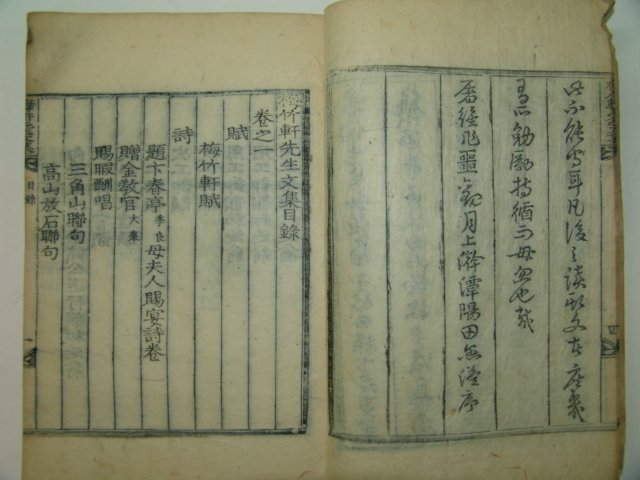 此不能寫耳凡後之讀斯文者庶幾
有所勸勵持循而毋忽也哉
屠維噩月上澣潭陽田序
梅竹軒先生文集目錄
卷之一
賦
梅竹軒賦
詩
題卞春亭季良母夫人賜宴詩卷
贈金敎官大來
賜暇酬唱
三角山聯句
高山放石聯句
目錄
一